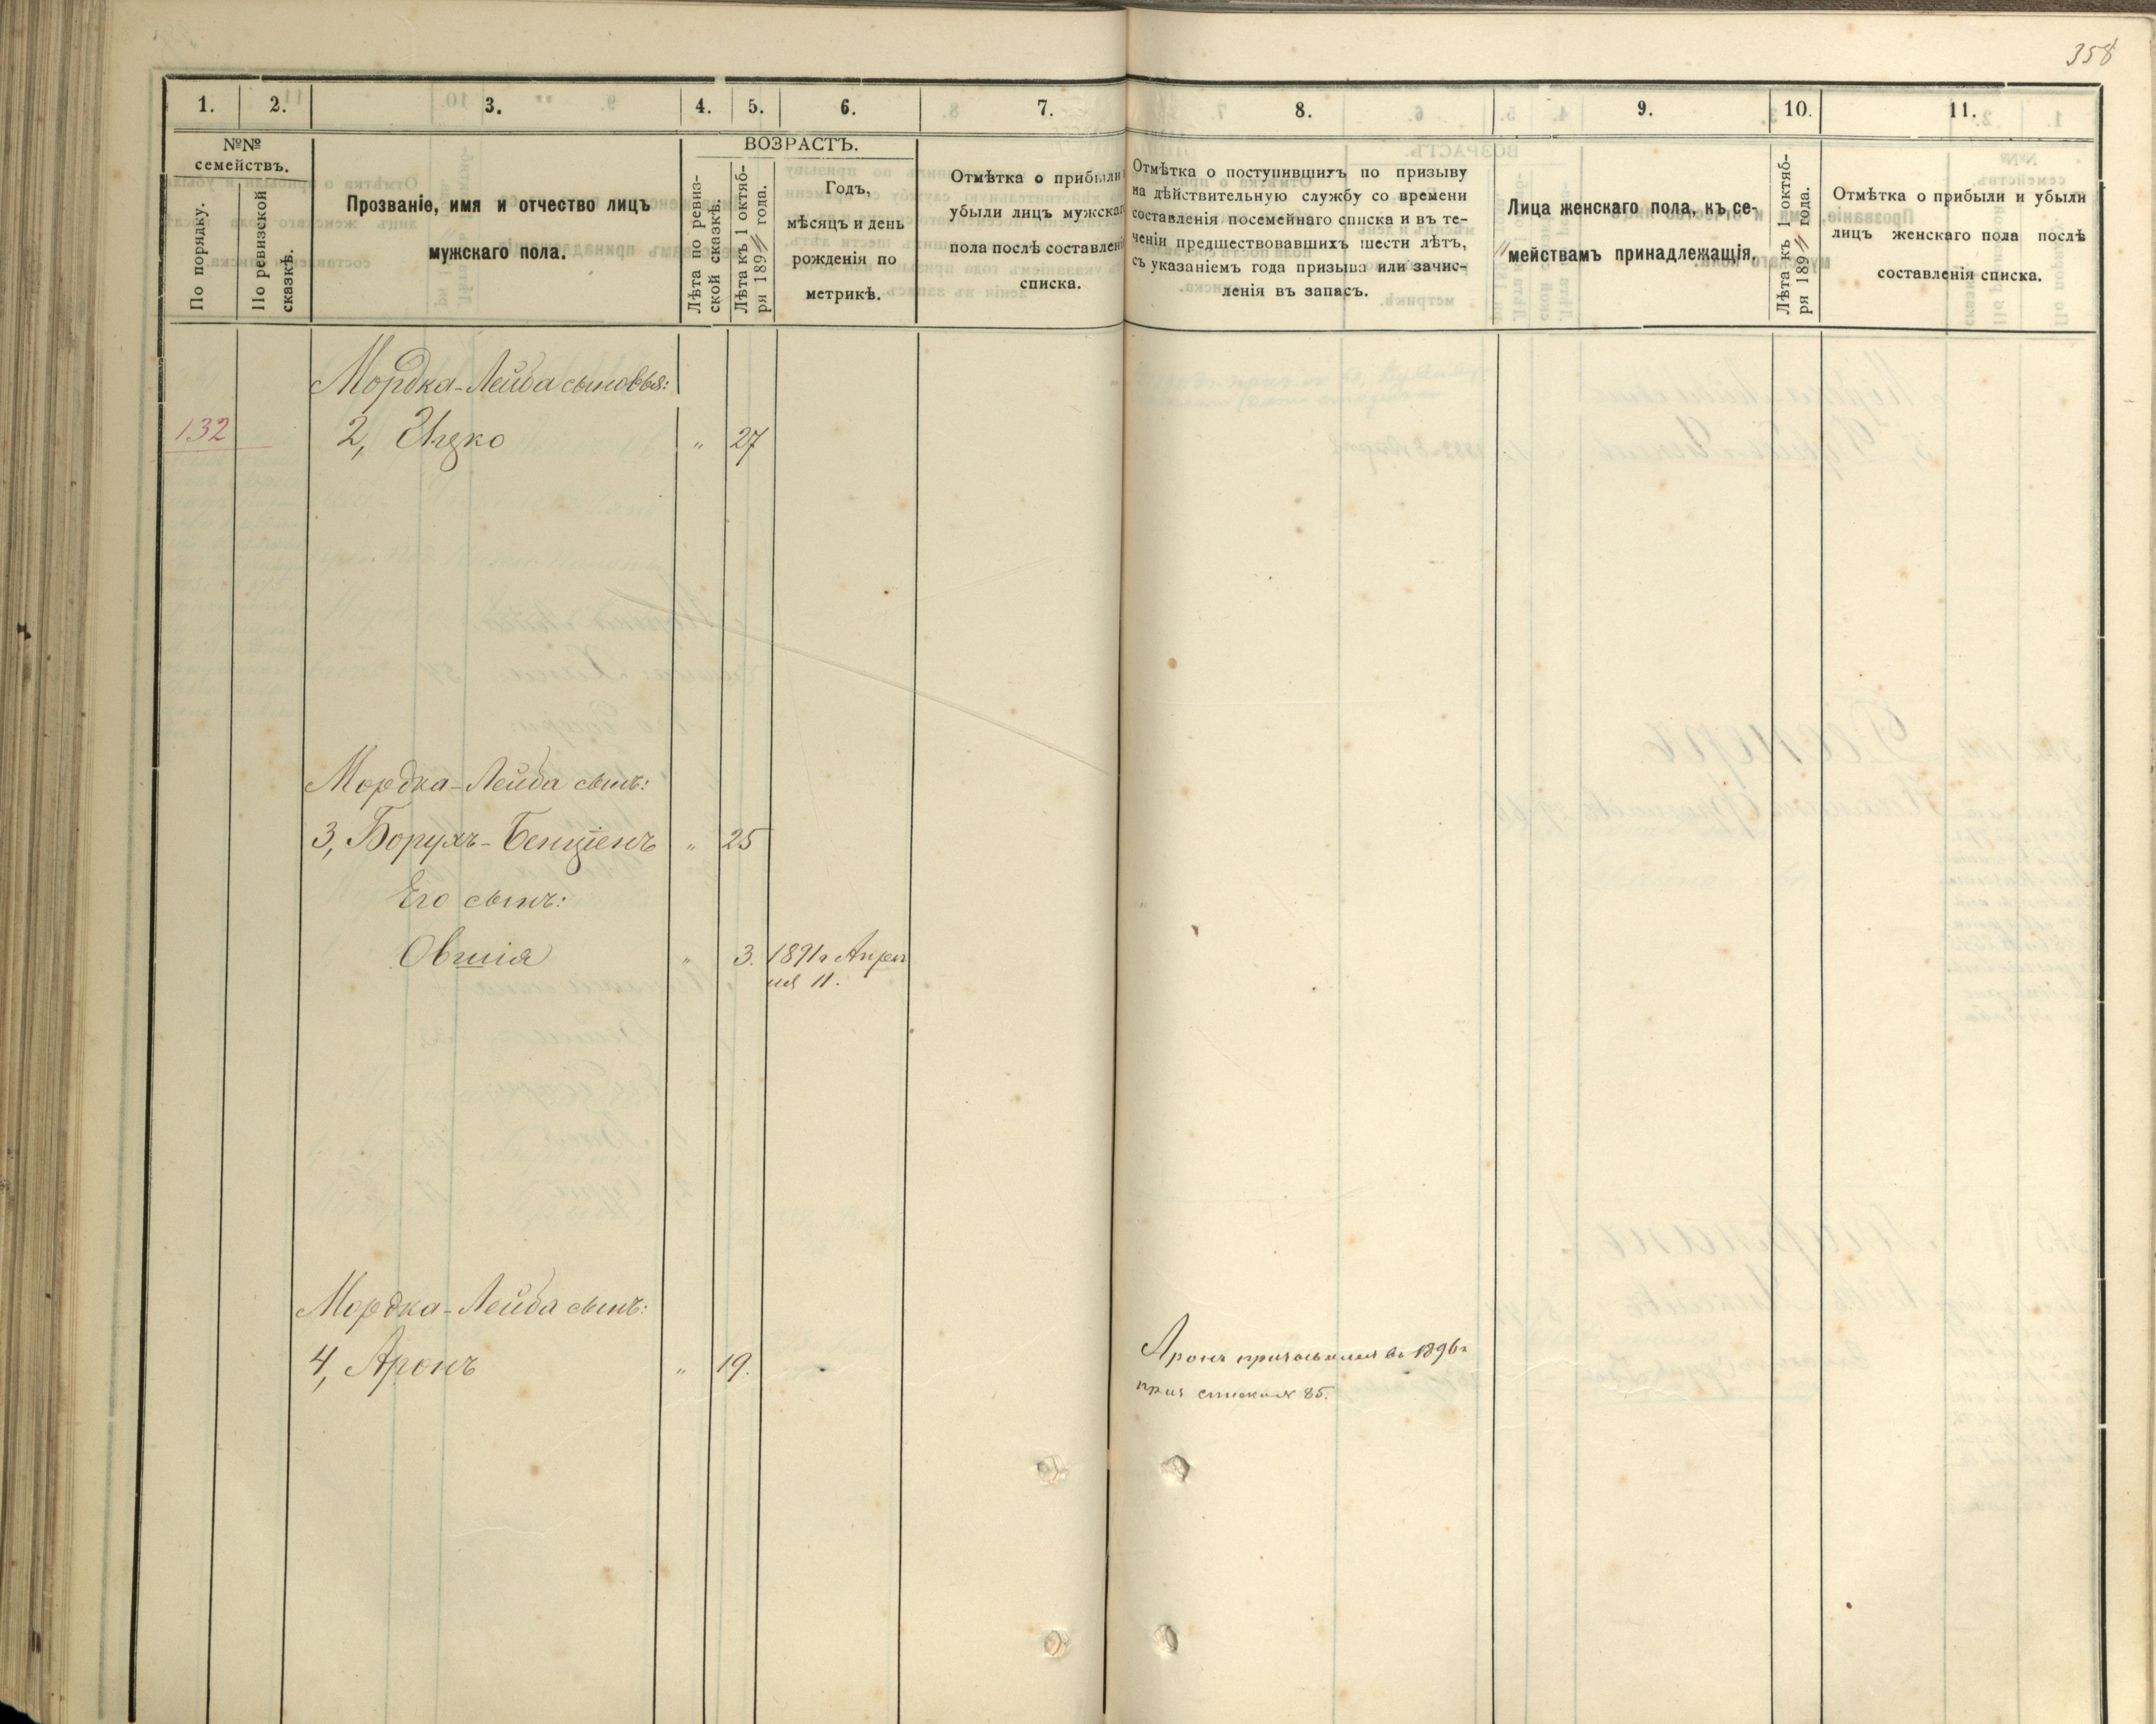 358
1. 2. 3. 4. 5. 6. 7. 8. 9. 10. 11.
№№
семействъ.
По порядку.
По ревизской
сказкѣ.
Прозваніе, имя и отчество лицъ
мужскаго пола.
ВОЗРАСТЪ.
Лѣта по ревиз-
ской сказкѣ.
Лѣта къ 1 октяб-
ря 189 года.
Годъ,
мѣсяцъ и день
рожденія по
метрикѣ.
Отмѣтка о прибыли
убыли лицъ мужскаг
пола послѣ составлені
списка.
Отмѣтка о поступившихъ по призыву
на дѣйствительную службу со времени
составленія посемейнаго списка и въ те-
ченіи предшествовавшихъ шести лѣтъ,
съ указаніемъ года призыва или зачис-
ленія въ запасъ.
Лица женскаго пола, къ се-
мействамъ принадлежащія.
Лѣта къ 1 октяб-
ря 189 года.
Отмѣтка о прибыли и убыли
лицъ женскаго пола послѣ
составленія списка.
Мордка-Лейба сыновья:
132 2, Ицко " 27
Мордка-Лейба сынъ:
3, Борухъ-Бенціенъ " 25
Его сынъ:
Овшія " 3. 1891г Апре
ля 11.
Мордка-Лейба сынъ:
4, Аронъ " 19.
Аронъ призывался въ 1896г
приз списка № 85.